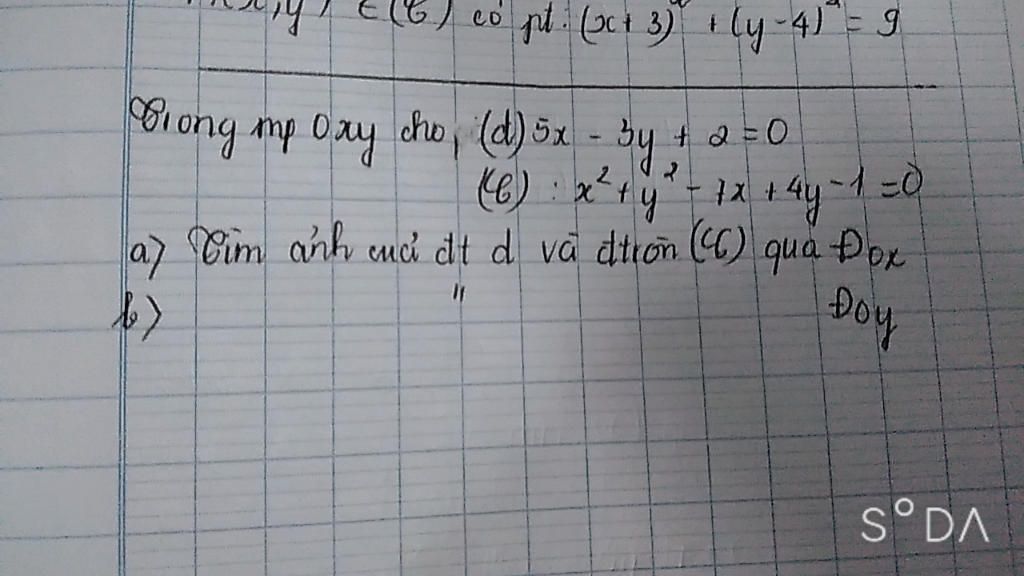 y) ∈ (C) có pt: (x+3)² + (y-4)² = 9
Trong mp Oxy cho, (d) 5x - 3y + 2 = 0
(C) : x² + y² - 7x + 4y - 1 = 0
a) Tìm ảnh của đt d và đtròn (C) qua Đox
b) " Đoy
SODA